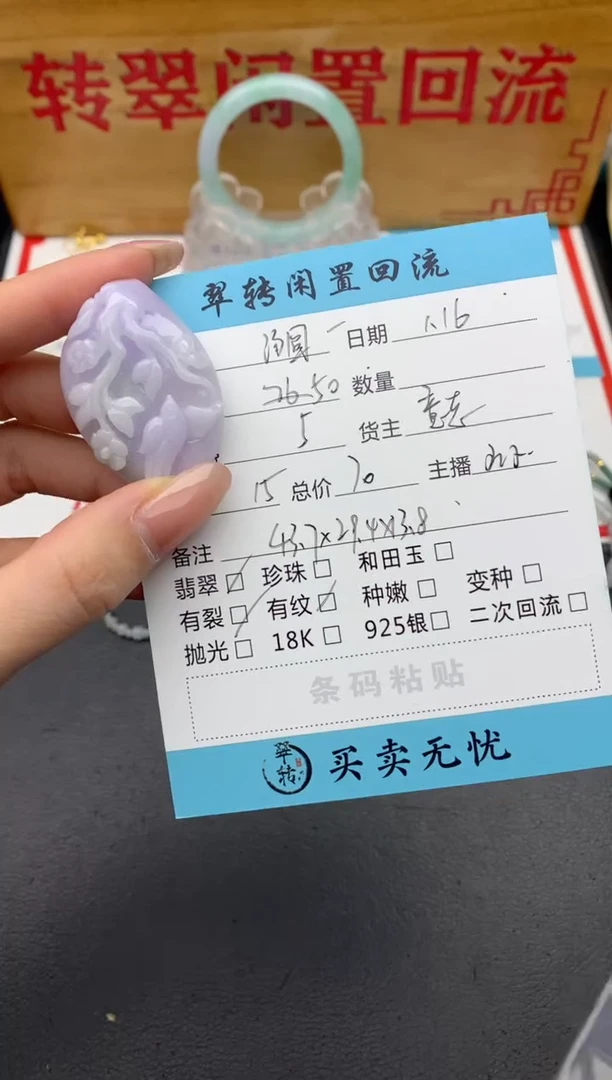 转翠闲置回流
翠转闲置回流
汤圆 日期 1.16
26.50 数量
5 货主
15 总价 70 主播
备注 43.7x29.4x13.8
翡翠 珍珠 和田玉
有裂 有纹 种嫩 变种
抛光 18K 925银 二次回流
条码粘贴
翠转 买卖无忧